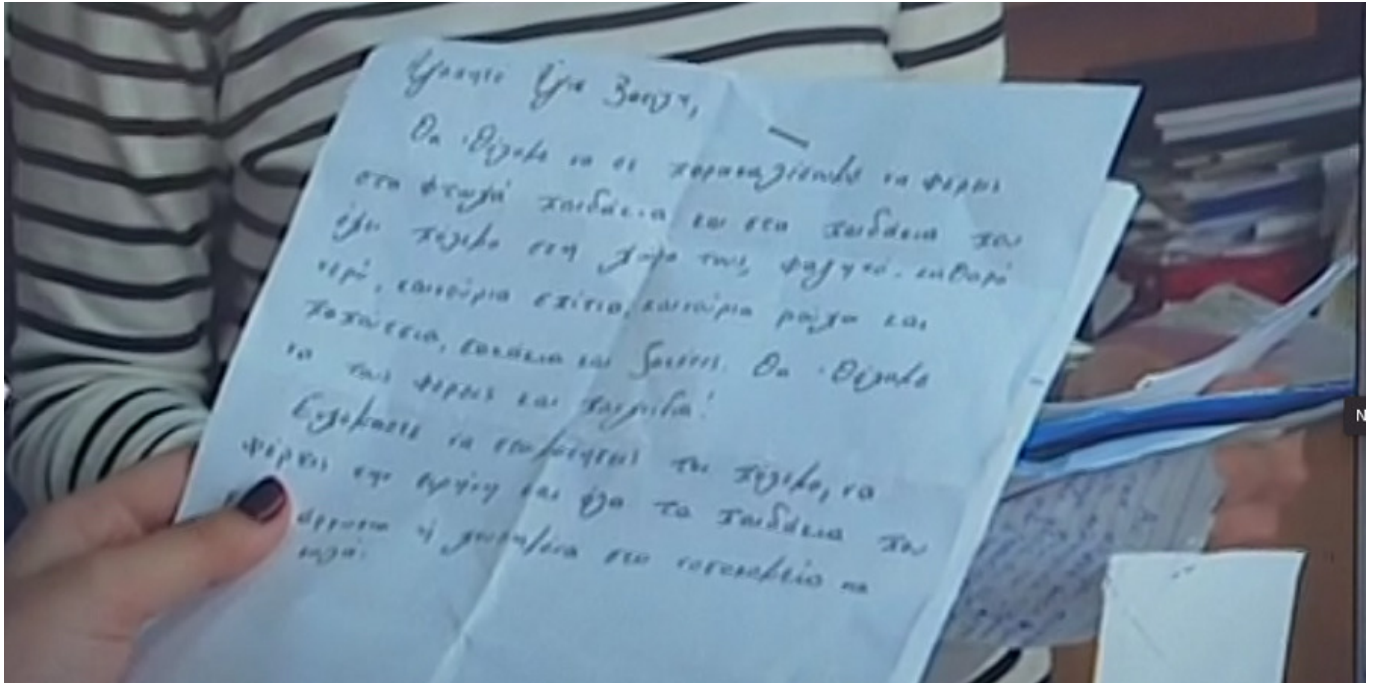 Αγαπητέ Άγιε Βασίλη,
Θα θέλαμε να σε παρακαλέσουμε να φέρεις
στα φτωχά παιδάκια και στα παιδάκια που
έχει πόλεμο στη χώρα τους, φαγητό, καθαρό
νερό, καινούρια σπίτια, καινούρια ρούχα και
παπούτσια, και δασκάλους. Θα θέλαμε
να τους φέρεις και παιχνίδια!
Ευχόμαστε να σταματήσεις τον πόλεμο, να
φέρεις την ειρήνη και όλα τα παιδάκια που
άρρωστα ή στο νοσοκομείο να
καλά.
N